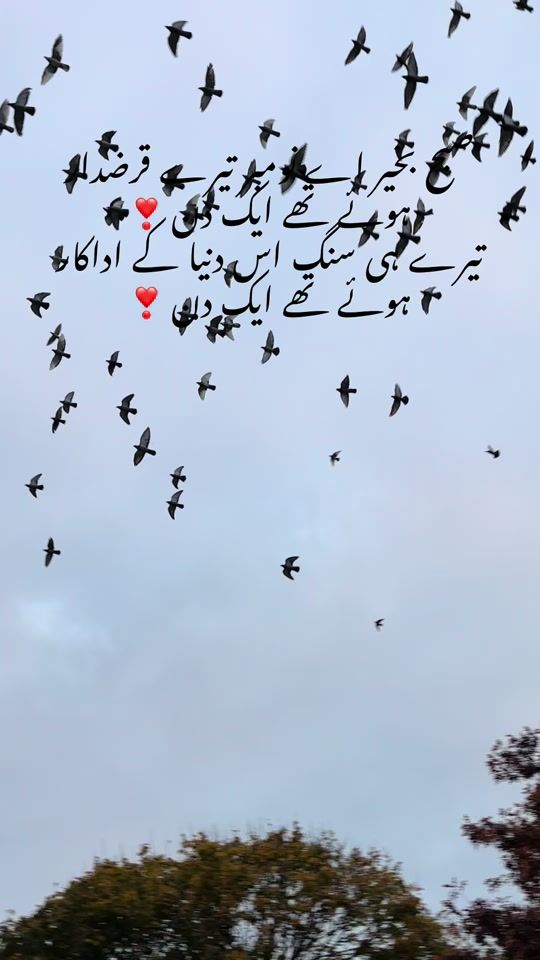 صبح بخیر اے نومبر تیرے قرضدار
ہوئے تھے ایک دن ❣️
تیرے ہی سنگ اس دنیا کے اداکار
ہوئے تھے ایک دن ❣️